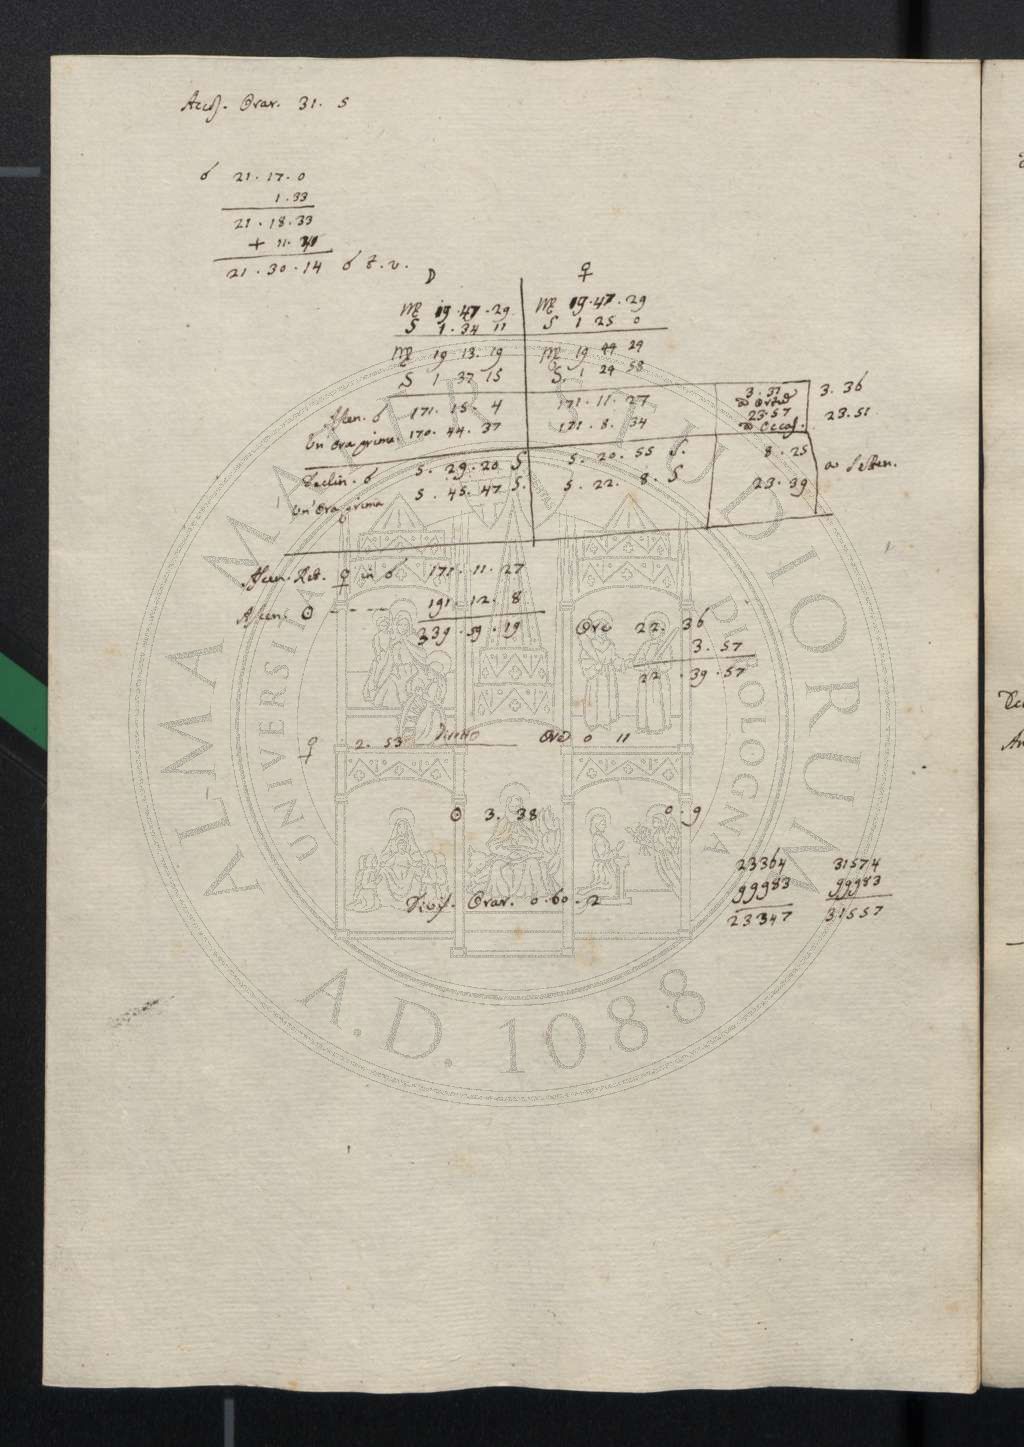 Accel. Orar. 31. 5
☌ 21. 17. 0
1. 33
21. 18. 33
+ 11. 41
21. 30. 14 ☌ t. v.
☽ ♀
♍ 19. 47. 29 ♍ 19. 47. 29
S 1. 34 11 S 1 25 0
♍ 19 13. 19 ♍ 19 44 29
S 1 37 15 S. 1 24 58
Ascen. ☌ 171. 15. 4 171. 11. 27 3. 37 3. 36
a Ort.
Un' Ora prima. 170. 44. 37 171. 8. 34 23. 57 23. 51
a Occas.
Declin. ☌ 5. 29. 20 S 5. 20. 55 S. 8. 25
Un' Ora prima 5. 45. 47 S. 5. 22. 8. S 23. 39 a Setten.
Ascen. Ret. ♀ in ☌ 171. 11. 27
Ascen. ☉ - - - - 191. 12. 8
339. 59. 19
Ore 22. 36
3. 57
22. 39. 57
♀ 2. 53 Diretto Ore 0 11
☉ 3. 38 0. 9
23364 31574
99983 99983
23347 31557
Divis. Orar. 0. 60. 2
ALMA MATER STUDIORUM
UNIVERSITÀ DI BOLOGNA
A.D. 1088